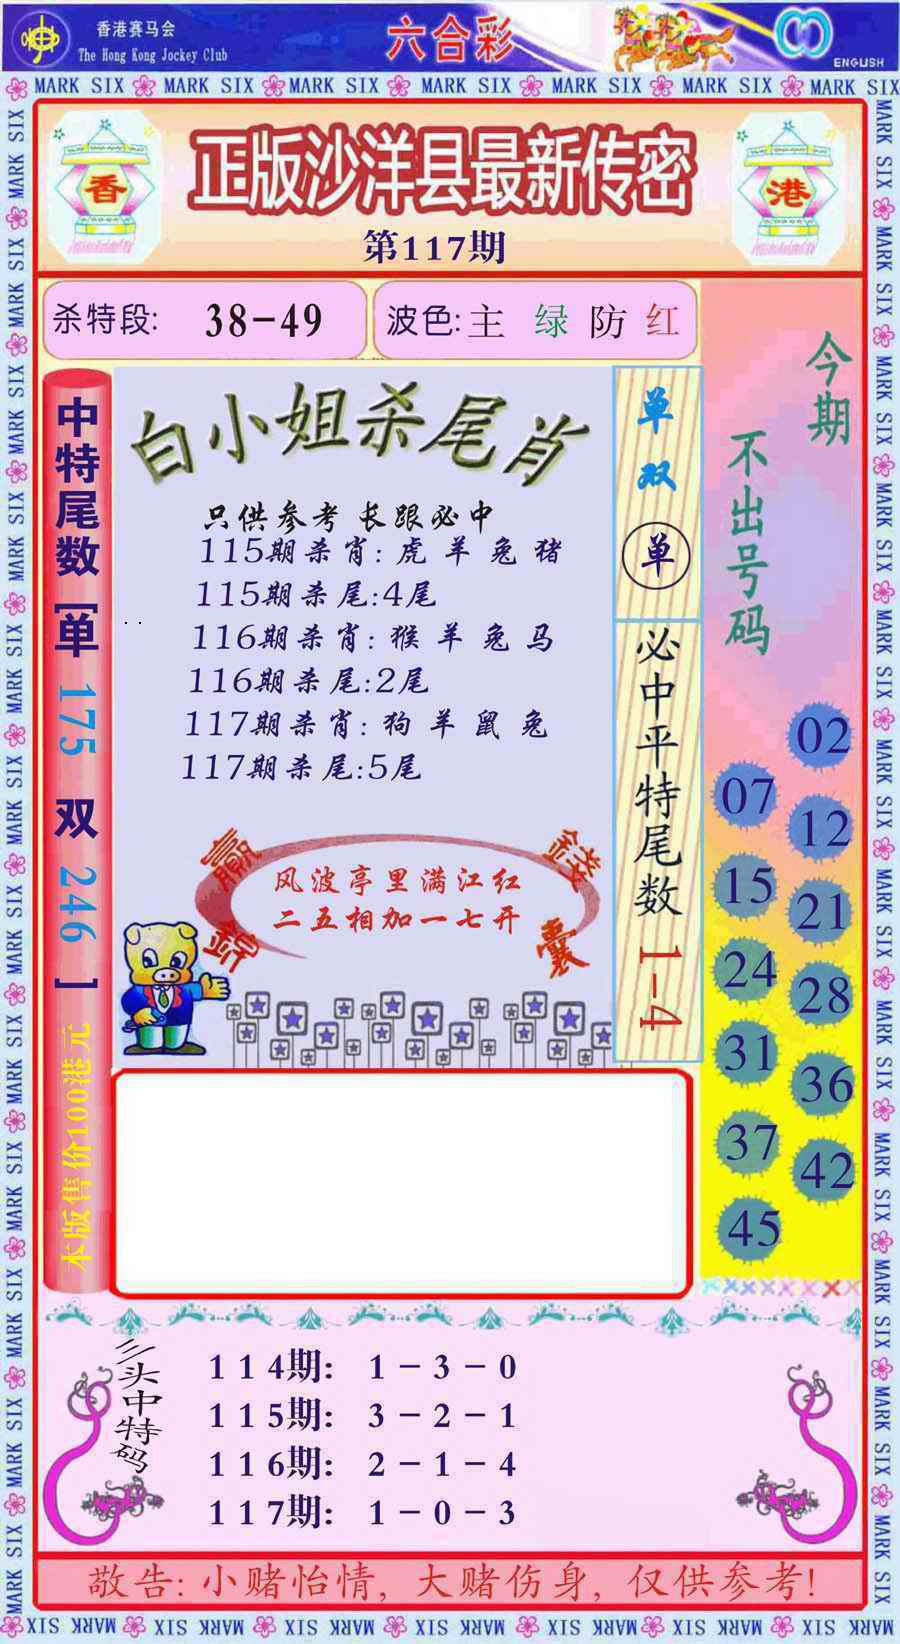 香港赛马会
The Hong Kong Jockey Club
六合彩
ENGLISH
MARK SIX MARK SIX MARK SIX MARK SIX MARK SIX MARK SIX MARK SIX
正版沙洋县最新传密
香
港
第117期
杀特段: 38-49
波色:主 绿 防 红
中特尾数[单 175 双 246 ]
本版售价100港元
白小姐杀尾肖
只供参考 长跟必中
115期杀肖: 虎 羊 兔 猪
115期杀尾:4尾
116期杀肖: 猴 羊 兔 马
116期杀尾:2尾
117期杀肖: 狗 羊 鼠 兔
117期杀尾:5尾
赢钱
锦囊
风波亭里满江红
二五相加一七开
单双
单
必中平特尾数 1-4
今期
不出号码
02
07
12
15
21
24
28
31
36
37
42
45
三头中特码
114期: 1-3-0
115期: 3-2-1
116期: 2-1-4
117期: 1-0-3
敬告: 小赌怡情, 大赌伤身, 仅供参考!
MARK SIX MARK SIX MARK SIX MARK SIX MARK SIX MARK SIX MARK SIX